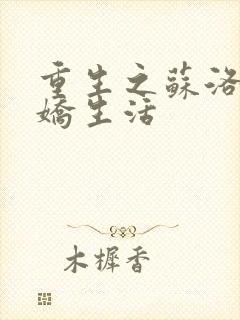 重生之蘇洛
嬌生活
木樨香